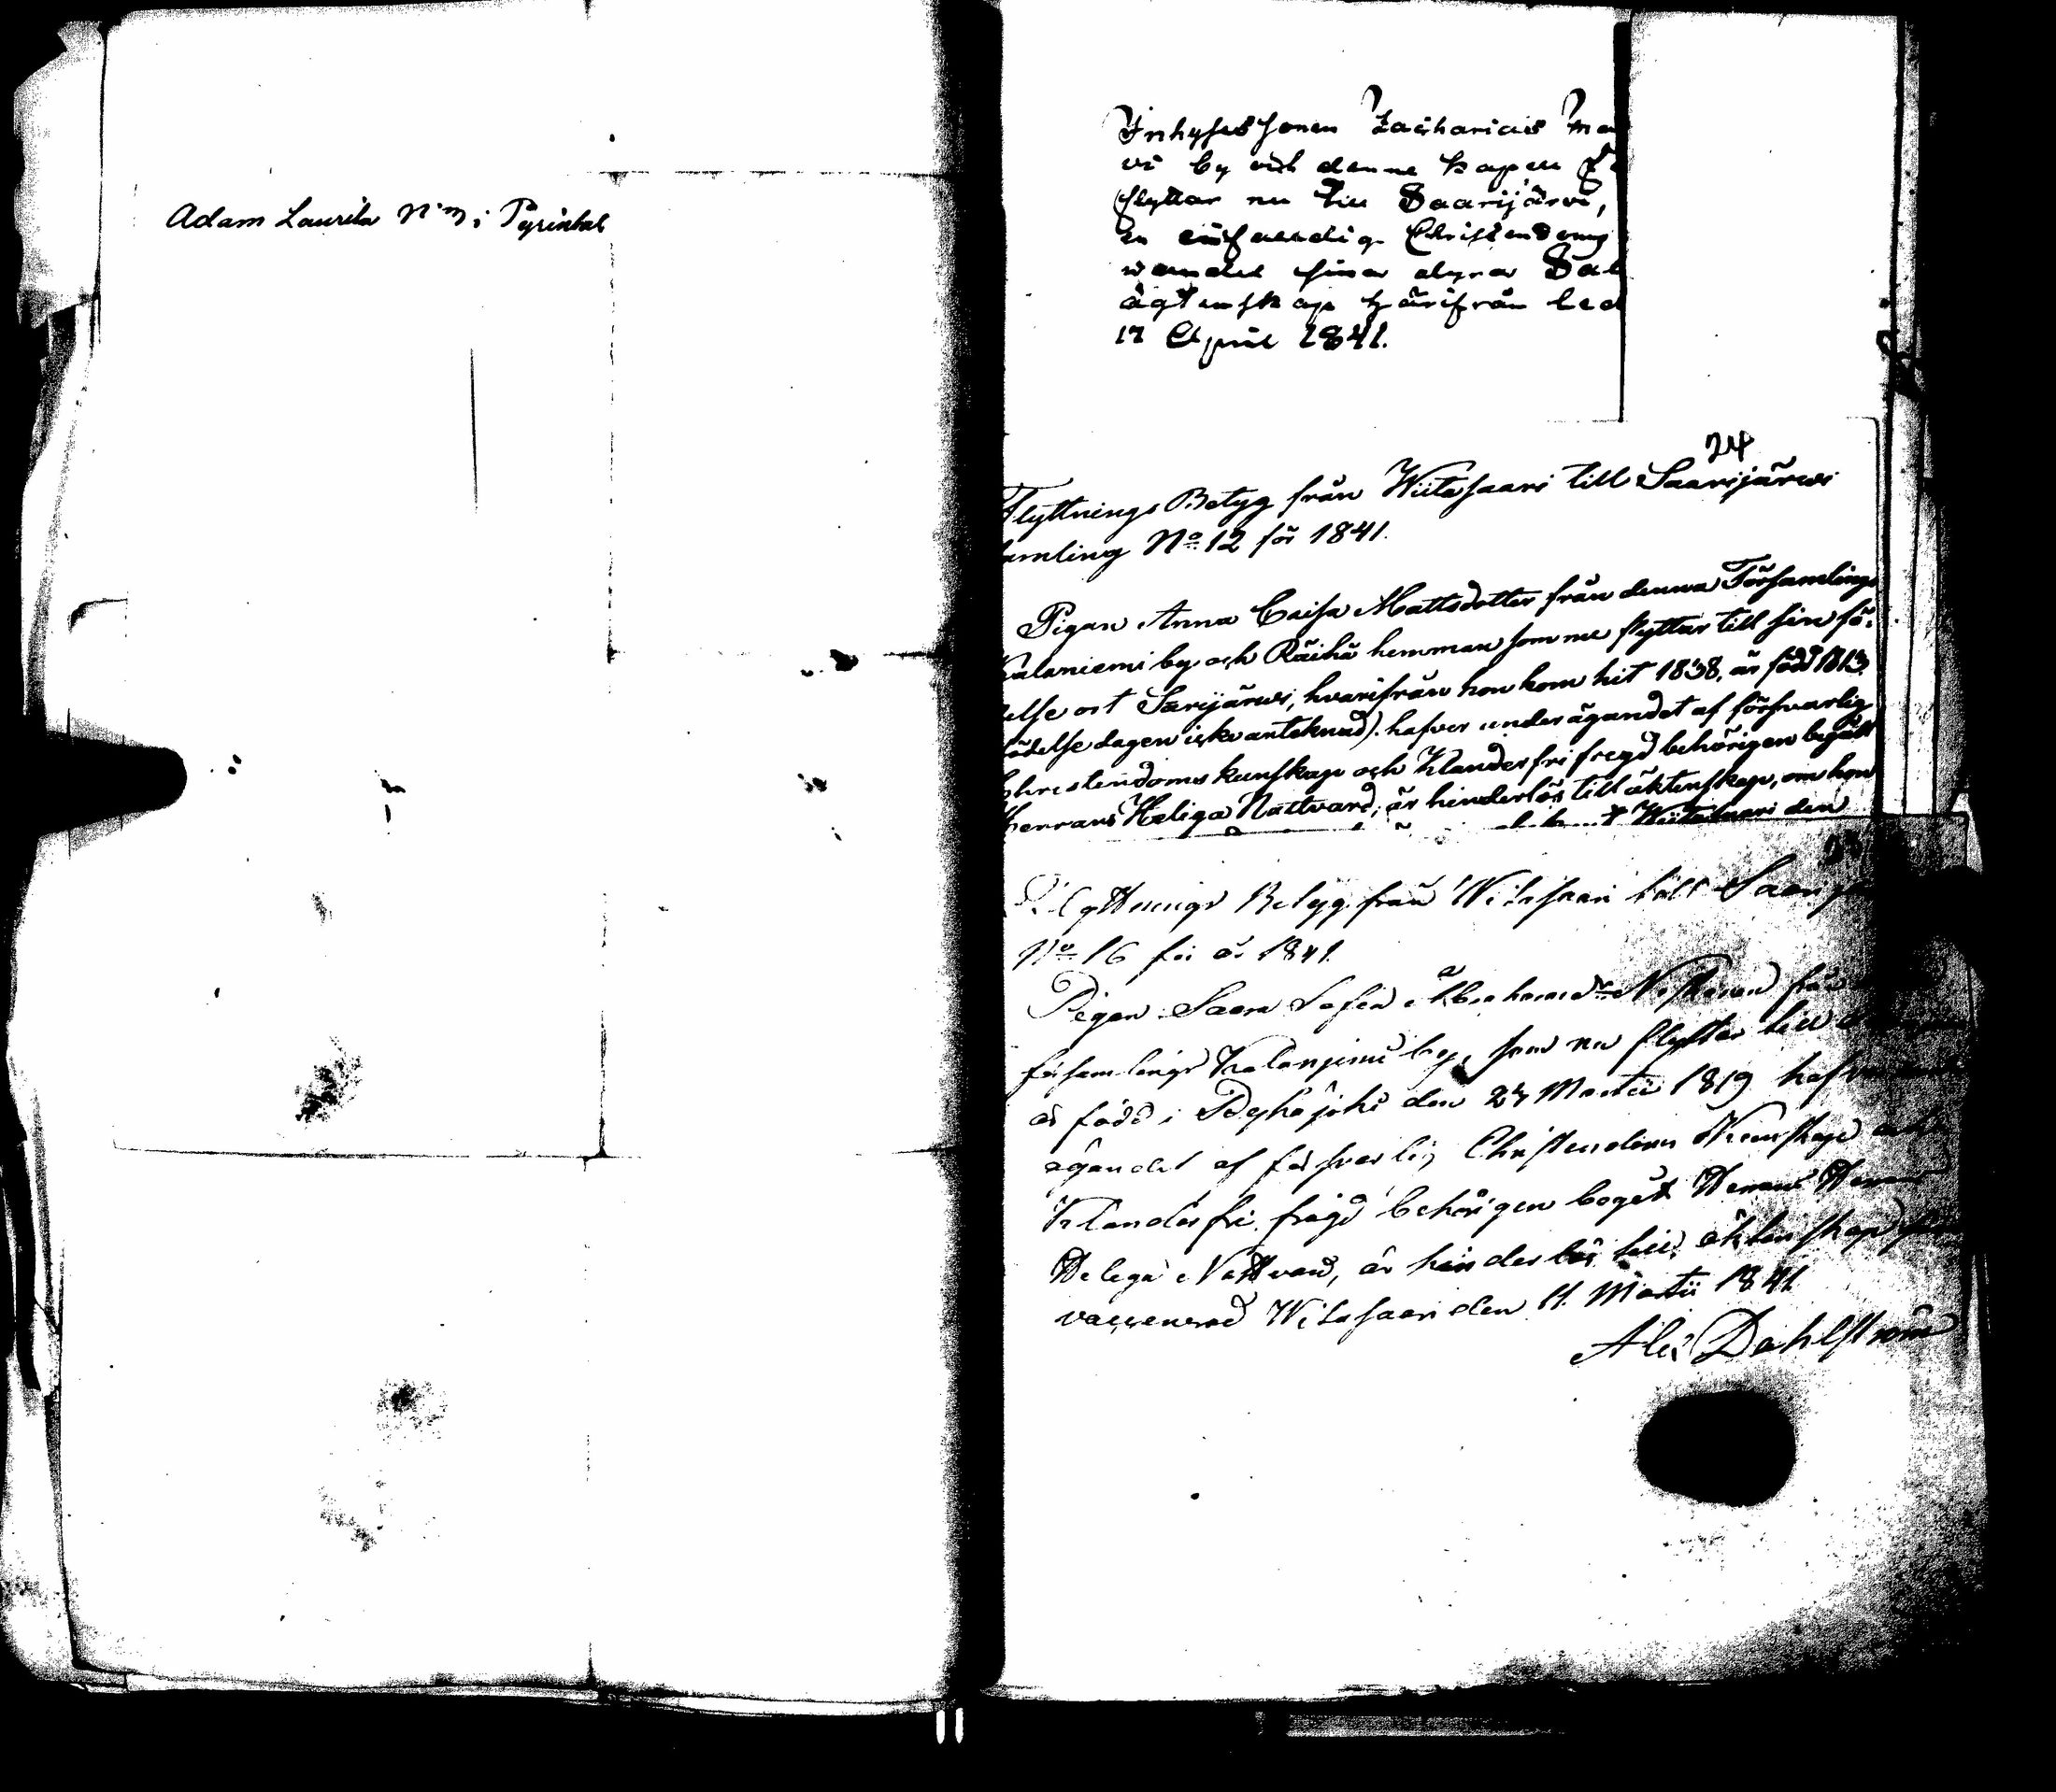 Adam Laurila No 3 i Pyrinkal
Inhyses sonen Zacharias Ma
vi by och denne kapell
flyttar nu till Saarijärvi,
en enfaldig Christendoms
wandel sina dyra Sal
ägtenskap härifrån led
17 April 1841.
24
Flyttnings Betyg från Wiitasaari till Saarijärwi
amling No 12 för 1841.
Pigan Anna Caisa Mattsdotter från denna Församlings
Kalaniemi by och Räihä hemman som nu flyttar till sin fö-
delse ort Sarijärwi, hvarifrån hon kom hit 1838, är född 1813
födelse dagen icke antecknad). hafver under ägandet af försvarlig
Christendoms kunskap och klanderfri fregd behörigen begått
Herrans Heliga Nattvard, är hinderlös till äktenskap, om hon
Wiitasaari den
Flyttnings Betyg från Witasaari till Saarij
No 16 för år 1841.
Pigan Sara Sofia Abrahamsdr från
församlings Kalaniemi by, som nu flyttar till
är född i Pyhäjoki den 27 Martii 1819 hafver
ägandet af försvarlig Christendoms Kunskap och
Klanderfri frägd behörigen begått Herrans
Heliga Nattvard, är hinderlös till äktenskap
vaccinerad Witasaari den 11. Martii 1841.
Alex Dahlström